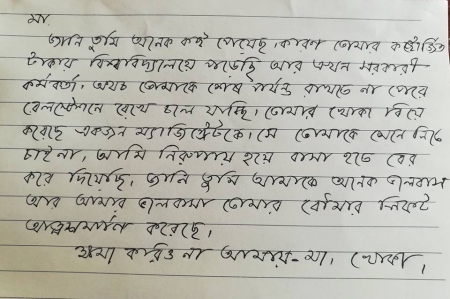 মা,
জানি তুমি অনেক কষ্ট পেয়েছ, কারণ তোমার কষ্টার্জিত
টাকায় বিশ্ববিদ্যালয়ে পড়েছি আর এখন সরকারী
কর্মকর্তা, অথচ তোমাকে শেষ পর্যন্ত রাখতে না পেরে
রেলস্টেশনে রেখে চলে যাচ্ছি, তোমার খোকা বিয়ে
করেছে একজন ম্যাজিস্ট্রেটকে, সে তোমাকে মেনে নিতে
চাই না, আমি নিরুপায় হয়ে বাসা হতে বের
করে দিয়েছি, জানি তুমি আমাকে অনেক ভালবাস
আর আমার ভালবাসা তোমার বৌমার নিকট
আত্মসমর্পন করেছে।
ক্ষমা করিও না আমায়-মা। খোকা।